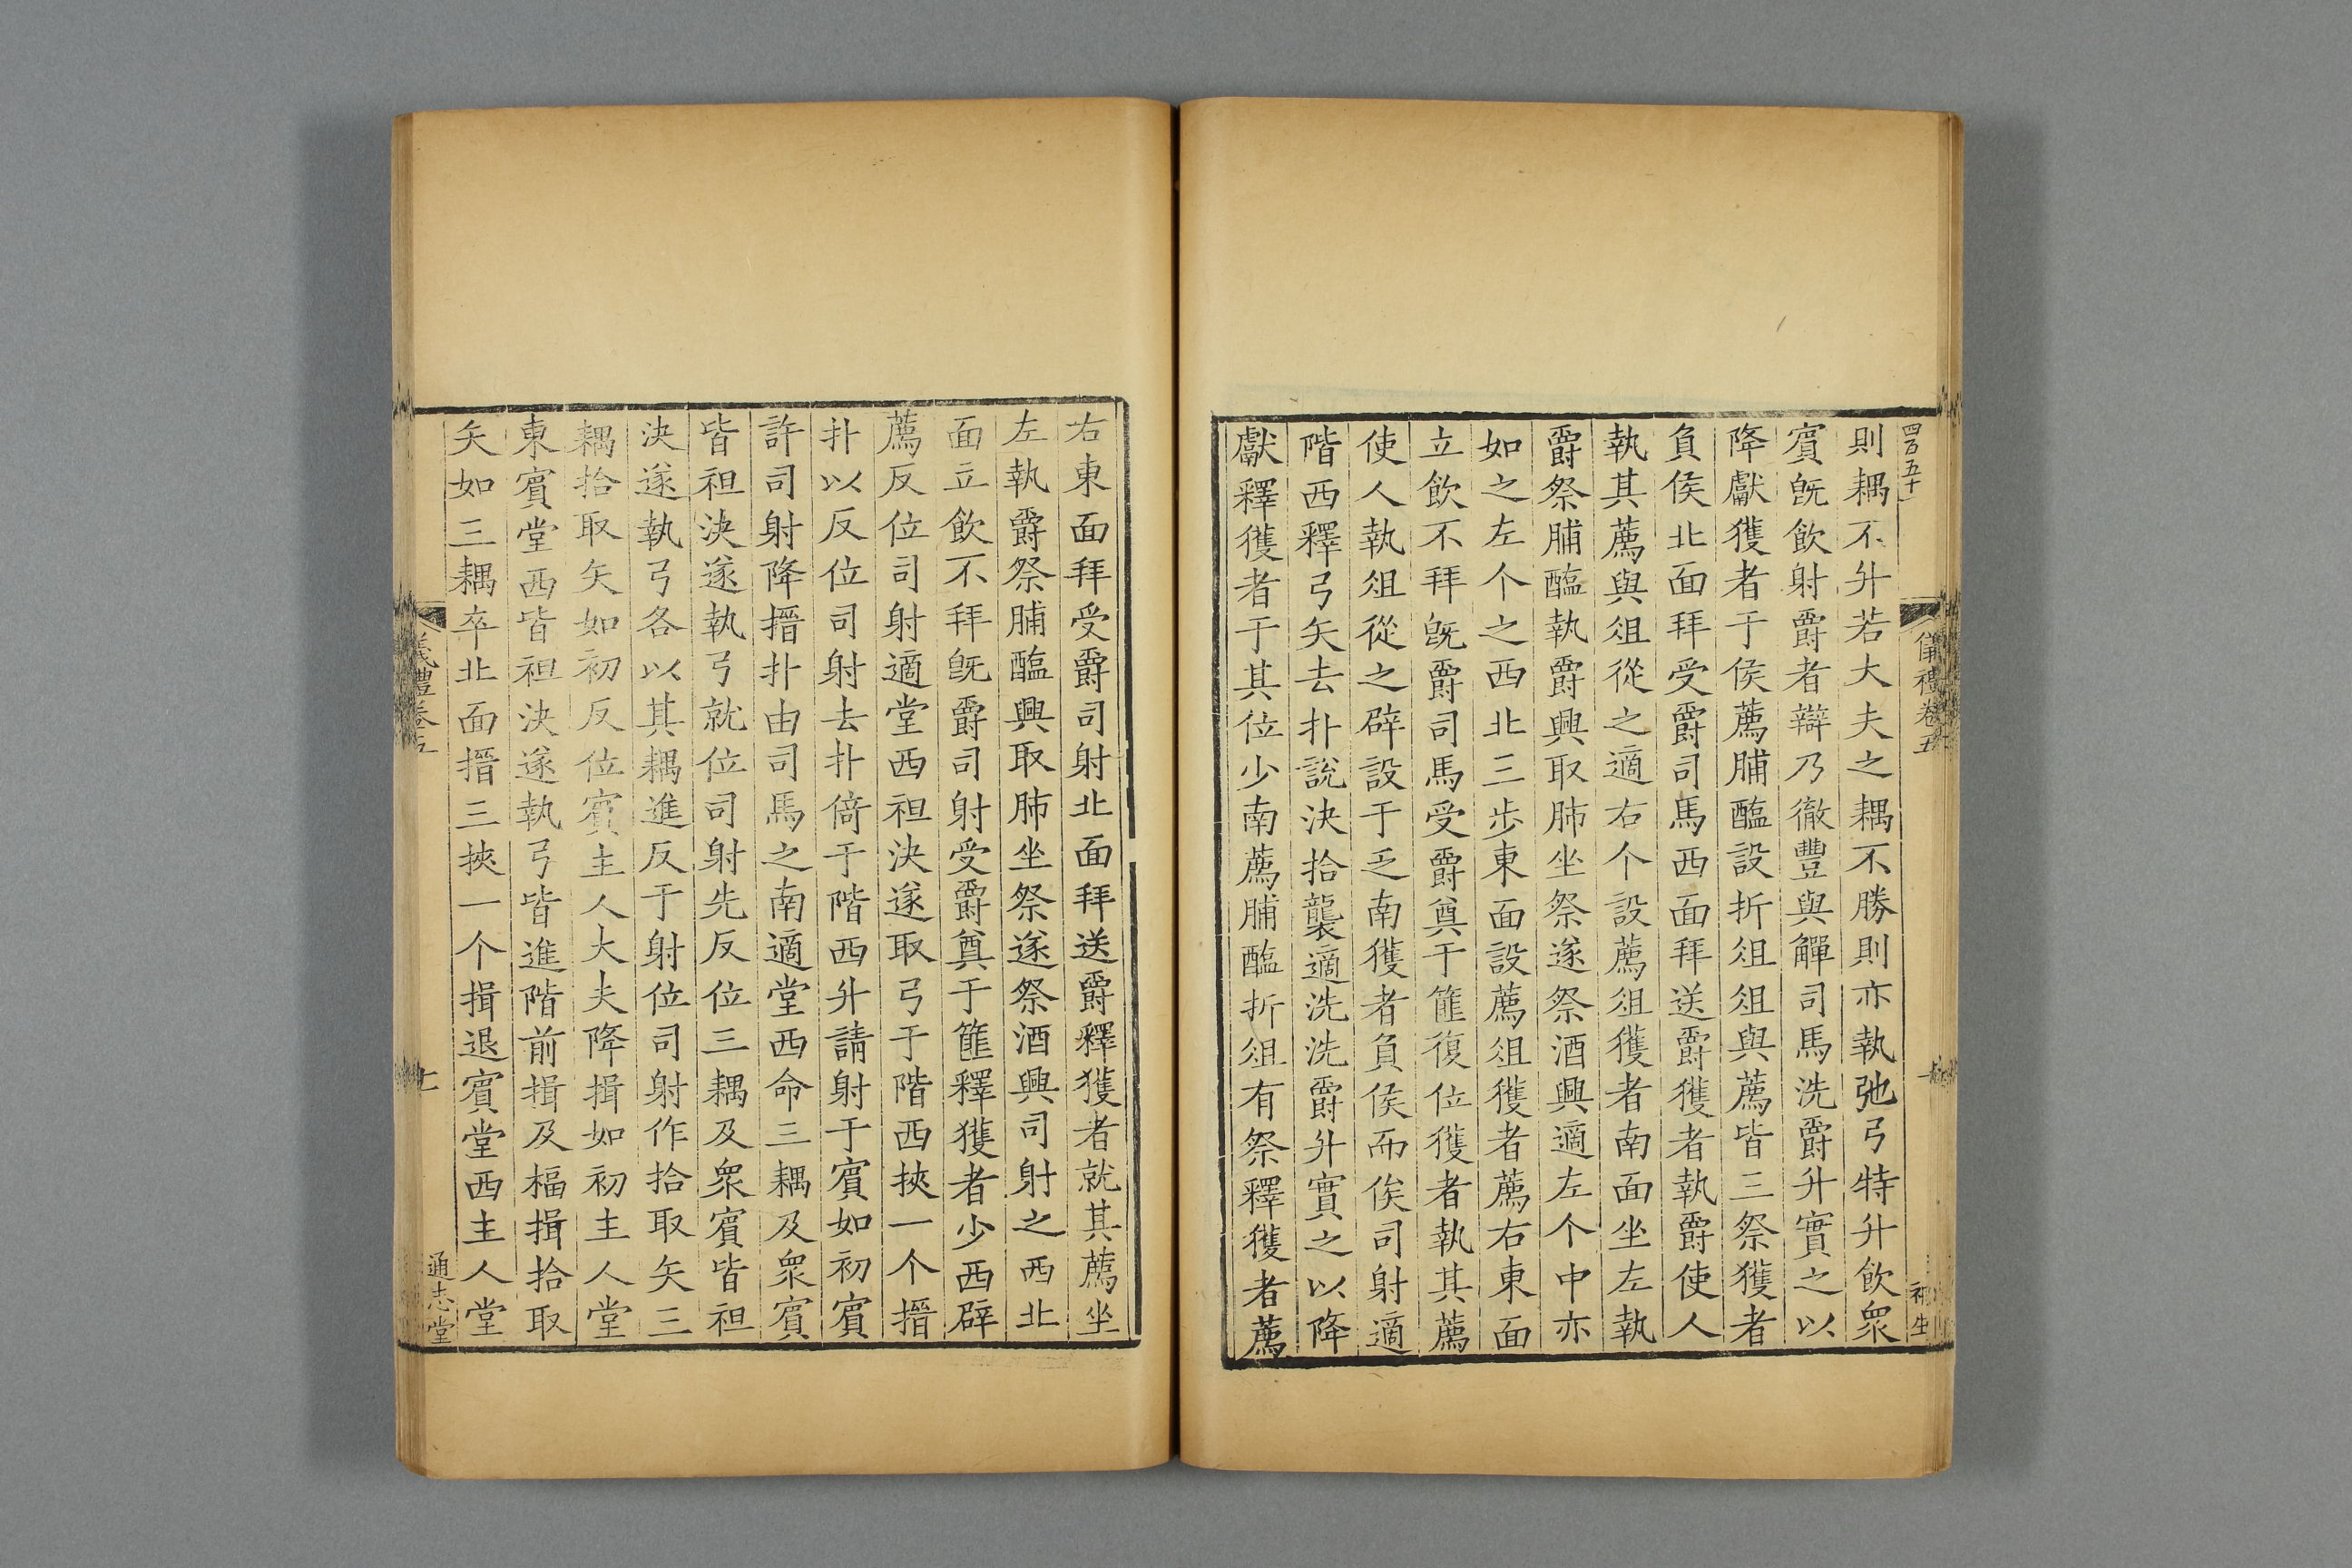 四百五十
則耦不升若大夫之耦不勝則亦執弛弓特升飲衆
賔旣飲射爵者辯乃徹豐與觶司馬洗爵升實之以
降獻獲者于侯薦脯醢設折俎俎與薦皆三祭獲者
負侯北面拜受爵司馬西面拜送爵獲者執爵使人
執其薦與俎從之適右个設薦俎獲者南面坐左執
爵祭脯醢執爵興取肺坐祭遂祭酒興適左个中亦
如之左个之西北三步東面設薦俎獲者薦右東面
立飲不拜旣爵司馬受爵奠于篚復位獲者執其薦
使人執俎從之辟設于乏南獲者負侯而俟司射適
階西釋弓矢去扑說決拾襲適洗洗爵升實之以降
獻釋獲者于其位少南薦脯醢折俎有祭釋獲者薦
儀禮卷五
右東面拜受爵司射北面拜送爵釋獲者就其薦坐
左執爵祭脯醢興取肺坐祭遂祭酒興司射之西北
面立飲不拜旣爵司射受爵奠于篚釋獲者少西辟
薦反位司射適堂西袒決遂取弓于階西挾一个搢
扑以反位司射去扑倚于階西升請射于賔如初賔
許司射降搢扑由司馬之南適堂西命三耦及衆賔
皆袒決遂執弓就位司射先反位三耦及衆賔皆袒
決遂執弓各以其耦進反于射位司射作拾取矢三
耦拾取矢如初反位賔主人大夫降揖如初主人堂
東賔堂西皆袒決遂執弓皆進階前揖及楅揖拾取
矢如三耦卒北面搢三挾一个揖退賔堂西主人堂
儀禮卷五
通志堂